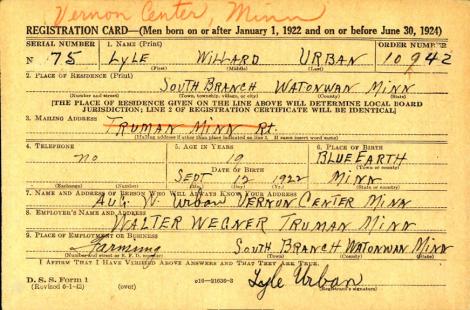 Vernon Center, Minn
REGISTRATION CARD—(Men born on or after January 1, 1922 and on or before June 30, 1924)
SERIAL NUMBER 1. NAME (Print) ORDER NUMBER
N 75 LYLE WILLARD URBAN 10942
(First) (Middle) (Last)
2. PLACE OF RESIDENCE (Print)
SOUTH BRANCH WATONWAN MINN
(Number and street) (Town, township, village, or city) (County) (State)
[THE PLACE OF RESIDENCE GIVEN ON THE LINE ABOVE WILL DETERMINE LOCAL BOARD
JURISDICTION; LINE 2 OF REGISTRATION CERTIFICATE WILL BE IDENTICAL]
3. MAILING ADDRESS
TRUMAN MINN Rt.
(Mailing address if other than place indicated on line 2. If same insert word same)
4. TELEPHONE 5. AGE IN YEARS 6. PLACE OF BIRTH
no 19 BLUE EARTH
DATE OF BIRTH (Town or county)
SEPT 12 1922 MINN
(Exchange) (Number) (Mo.) (Day) (Yr.) (State or country)
7. NAME AND ADDRESS OF PERSON WHO WILL ALWAYS KNOW YOUR ADDRESS
AUG. W. Urban VERNON CENTER MINN
8. EMPLOYER'S NAME AND ADDRESS
WALTER WEGNER TRUMAN MINN
9. PLACE OF EMPLOYMENT OR BUSINESS
Farming SOUTH BRANCH WATONWAN MINN
(Number and street or R. F. D. number) (Town) (County) (State)
I AFFIRM THAT I HAVE VERIFIED ABOVE ANSWERS AND THAT THEY ARE TRUE.
D. S. S. Form 1
(Revised 6-1-42) (over) 16—21630-2 Lyle Urban
(Registrant's signature)